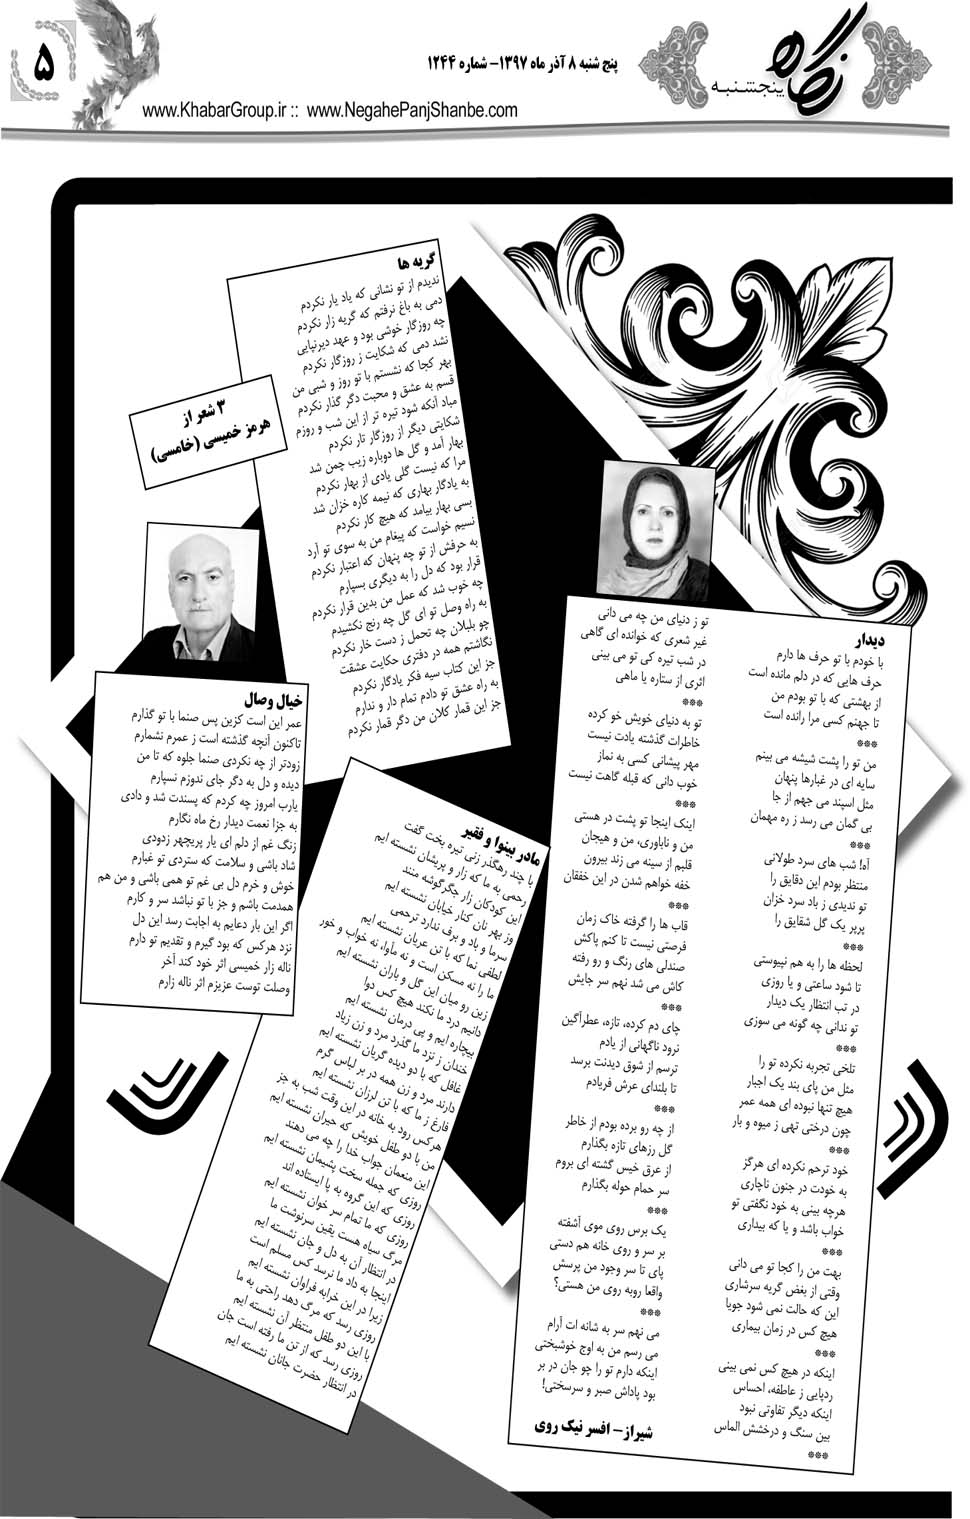 ۵
پنج شنبه ۸ آذر ماه ۱۳۹۷- شماره ۱۲۴۴
نگاه
پنجشنبه
www.KhabarGroup.ir :: www.NegahePanjShanbe.com
گریه ها
ندیدم از تو نشانی که یاد یار نکردم
دمی به باغ نرفتم که گریه زار نکردم
چه روزگار خوشی بود و عهد دیرنپایی
نشد دمی که شکایت ز روزگار نکردم
بهر کجا که نشستم با تو روز و شبی من
قسم به عشق و محبت دگر گذار نکردم
مباد آنکه شود تیره تر از این شب و روزم
شکایتی دیگر از روزگار تار نکردم
بهار آمد و گل ها دوباره زیب چمن شد
مرا که نیست گلی یادی از بهار نکردم
به یادگار بهاری که نیمه کاره خزان شد
بسی بهار بیامد که هیچ کار نکردم
نسیم خواست که پیغام من به سوی تو آرد
به حرفش از تو چه پنهان که اعتبار نکردم
قرار بود که دل را به دیگری بسپارم
چه خوب شد که عمل من بدین قرار نکردم
به راه وصل تو ای گل چه رنج نکشیدم
چو بلبلان چه تحمل ز دست خار نکردم
نگاشتم همه در دفتری حکایت عشقت
جز این کتاب سیه فکر یادگار نکردم
به راه عشق تو دادم تمام دار و ندارم
جز این قمار کلان من دگر قمار نکردم
۳ شعر از
هرمز خمیسی (خامسی)
خیال وصال
عمر این است کزین پس صنما با تو گذارم
تاکنون آنچه گذشته است ز عمرم نشمارم
زودتر از چه نکردی صنما جلوه که تا من
دیده و دل به دگر جای ندوزم نسپارم
یارب امروز چه کردم که پسندت شد و دادی
به جزا نعمت دیدار رخ ماه نگارم
زنگ غم از دلم ای یار پریچهر زدودی
شاد باشی و سلامت که ستردی تو غبارم
خوش و خرم دل بی غم تو همی باشی و من هم
همدمت باشم و جز با تو نباشد سر و کارم
اگر این بار دعایم به اجابت رسد این دل
نزد هرکس که بود گیرم و تقدیم تو دارم
ناله زار خمیسی اثر خود کند آخر
وصلت توست عزیزم اثر ناله زارم
مادر بینوا و فقیر
با چند رهگذر زنی تیره بخت گفت
رحمی به ما که زار و پریشان نشسته ایم
این کودکان زار جگرگوشه منند
وز بهر نان کنار خیابان نشسته ایم
سرما و باد و برف ندارد ترحمی
لطفی نما که با تن عریان نشسته ایم
ما را نه مسکن است و نه مأوا، نه خواب و خور
زین رو میان این گل و باران نشسته ایم
دانیم درد ما نکند هیچ کس دوا
بیچاره ایم و پی درمان نشسته ایم
خندان ز نزد ما گذرد مرد و زن زیاد
غافل که با دو دیده گریان نشسته ایم
دارند مرد و زن همه در بر لباس گرم
فارغ ز ما که با تن لرزان نشسته ایم
هرکس رود به خانه در این وقت شب به جز
من با دو طفل خویش که حیران نشسته ایم
این منعمان جواب خدا را چه می دهند
روزی که جمله سخت پشیمان نشسته ایم
روزی که این گروه به پا ایستاده اند
روزی که ما تمام سر خوان نشسته ایم
مرگ سیاه هست یقین سرنوشت ما
در انتظار آن به دل و جان نشسته ایم
اینجا به داد ما نرسد کس مسلم است
زیرا در این خرابه فراوان نشسته ایم
روزی رسد که مرگ دهد راحتی به ما
با این دو طفل منتظر آن نشسته ایم
روزی رسد که از تن ما رفته است جان
در انتظار حضرت جانان نشسته ایم
دیدار
با خودم با تو حرف ها دارم
حرف هایی که در دلم مانده است
از بهشتی که با تو بودم من
تا جهنم کسی مرا رانده است
***
من تو را پشت شیشه می بینم
سایه ای در غبارها پنهان
مثل اسپند می جهم از جا
بی گمان می رسد ز ره مهمان
***
آه! شب های سرد طولانی
منتظر بودم این دقایق را
تو ندیدی ز باد سرد خزان
پرپر یک گل شقایق را
***
لحظه ها را به هم نپیوستی
تا شود ساعتی و یا روزی
در تب انتظار یک دیدار
تو ندانی چه گونه می سوزی
***
تلخی تجربه نکرده تو را
مثل من پای بند یک اجبار
هیچ تنها نبوده ای همه عمر
چون درختی تهی ز میوه و بار
***
خود ترحم نکرده ای هرگز
به خودت در جنون ناچاری
هرچه بینی به خود نگفتی تو
خواب باشد و یا که بیداری
***
بهت من را کجا تو می دانی
وقتی از بغض گریه سرشاری
این که حالت نمی شود جویا
هیچ کس در زمان بیماری
***
اینکه در هیچ کس نمی بینی
ردپایی ز عاطفه، احساس
اینکه دیگر تفاوتی نبود
بین سنگ و درخشش الماس
***
تو ز دنیای من چه می دانی
غیر شعری که خوانده ای گاهی
در شب تیره کی تو می بینی
اثری از ستاره یا ماهی
***
تو به دنیای خویش خو کرده
خاطرات گذشته یادت نیست
مهر پیشانی کسی به نماز
خوب دانی که قبله گاهت نیست
***
اینک اینجا تو پشت در هستی
من و ناباوری، من و هیجان
قلبم از سینه می زند بیرون
خفه خواهم شدن در این خفقان
***
قاب ها را گرفته خاک زمان
فرصتی نیست تا کنم پاکش
صندلی های رنگ و رو رفته
کاش می شد نهم سر جایش
***
چای دم کرده، تازه، عطرآگین
نرود ناگهانی از یادم
ترسم از شوق دیدنت برسد
تا بلندای عرش فریادم
***
از چه رو برده بودم از خاطر
گل رزهای تازه بگذارم
از عرق خیس گشته ای بروم
سر حمام حوله بگذارم
***
یک برس روی موی آشفته
بر سر و روی خانه هم دستی
پای تا سر وجود من پرسش
واقعا روبه روی من هستی؟
***
می نهم سر به شانه ات آرام
می رسم من به اوج خوشبختی
اینکه دارم تو را چو جان در بر
بود پاداش صبر و سرسختی!
شیراز- افسر نیک روی